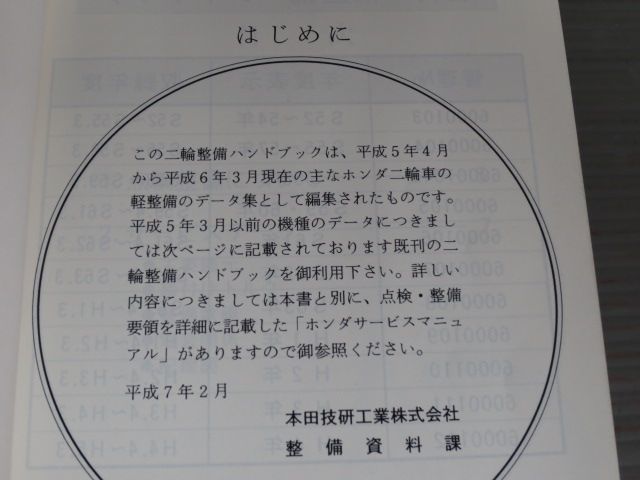 はじめに
この二輪整備ハンドブックは、平成5年4月
から平成6年3月現在の主なホンダ二輪車の
軽整備のデータ集として編集されたものです。
平成5年3月以前の機種のデータにつきまし
ては次ページに記載されております既刊の二
輪整備ハンドブックを御利用下さい。詳しい
内容につきましては本書と別に、点検・整備
要領を詳細に記載した「ホンダサービスマニュ
アル」がありますので御参照ください。
平成7年2月
本田技研工業株式会社
整備資料課